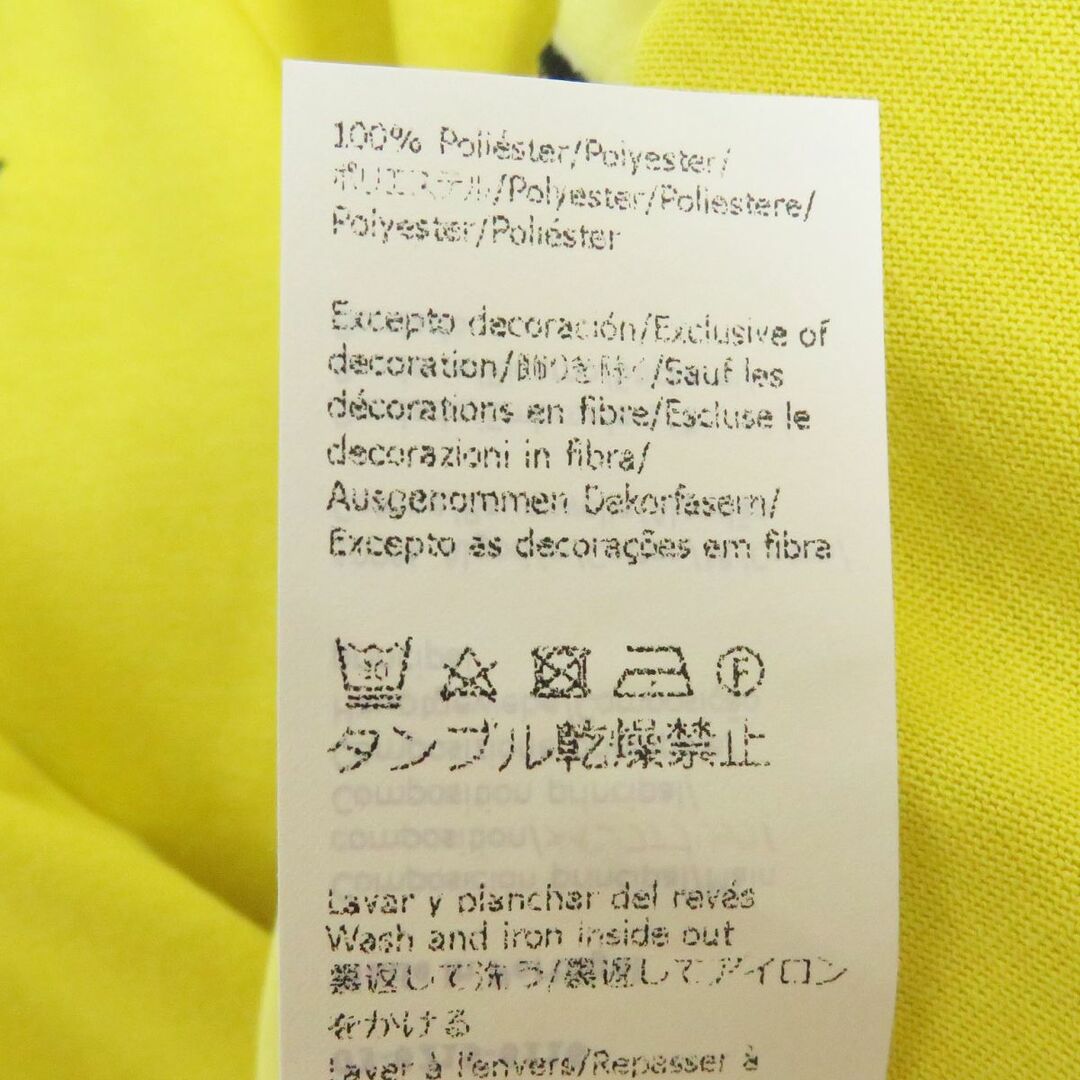 100% Poliéster/Polyester/
ポリエステル/Polyester/Poliestere/
Polyester/Poliéster
Excepto decoración/Exclusive of
decoration/飾りを除く/Sauf les
décorations en fibre/Escluse le
decorazioni in fibra/
Ausgenommen Dekorfasern/
Excepto as decorações em fibra
30 F
タンブル乾燥禁止
Lavar y planchar del revés
Wash and iron inside out
裏返して洗う/裏返してアイロン
をかける
Laver à l'envers/Repasser à